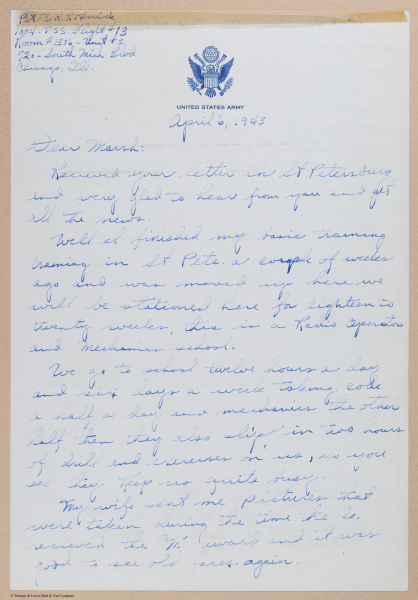 Pvt. E. N.
1004 - T.S.S. Flight #13
Room #1306 - Unit #2
720 - South Mich. Blvd
Chicago, Ill.
UNITED STATES ARMY
April 6, 1943
Dear Marsh:
Recieved your letter in St Petersburg
and very glad to hear from you and get
all the news.
Well I finished my basic training
training in St Pete. a couple of weeks
ago and was moved up here we
will be stationed here for eighteen to
twenty weeks, this is a Radio Operator
and Mechanics school.
We go to school twelve hours a day
and six days a week taking code
a half a day and mechanics the other
half then they also slip in two hours
of drill and exercises on us, so you
see they keep us quite busy.
My wife sent me pictures that
were taken during the time the Co.
recieved the "M" award and it was
good to see old faces again.